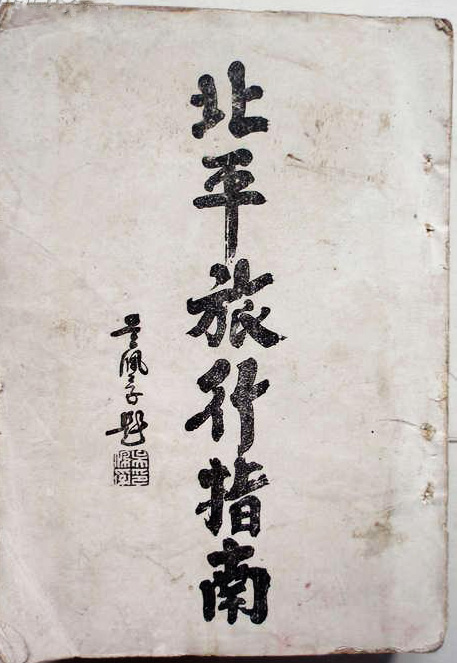 北平旅行指南
吳佩孚題